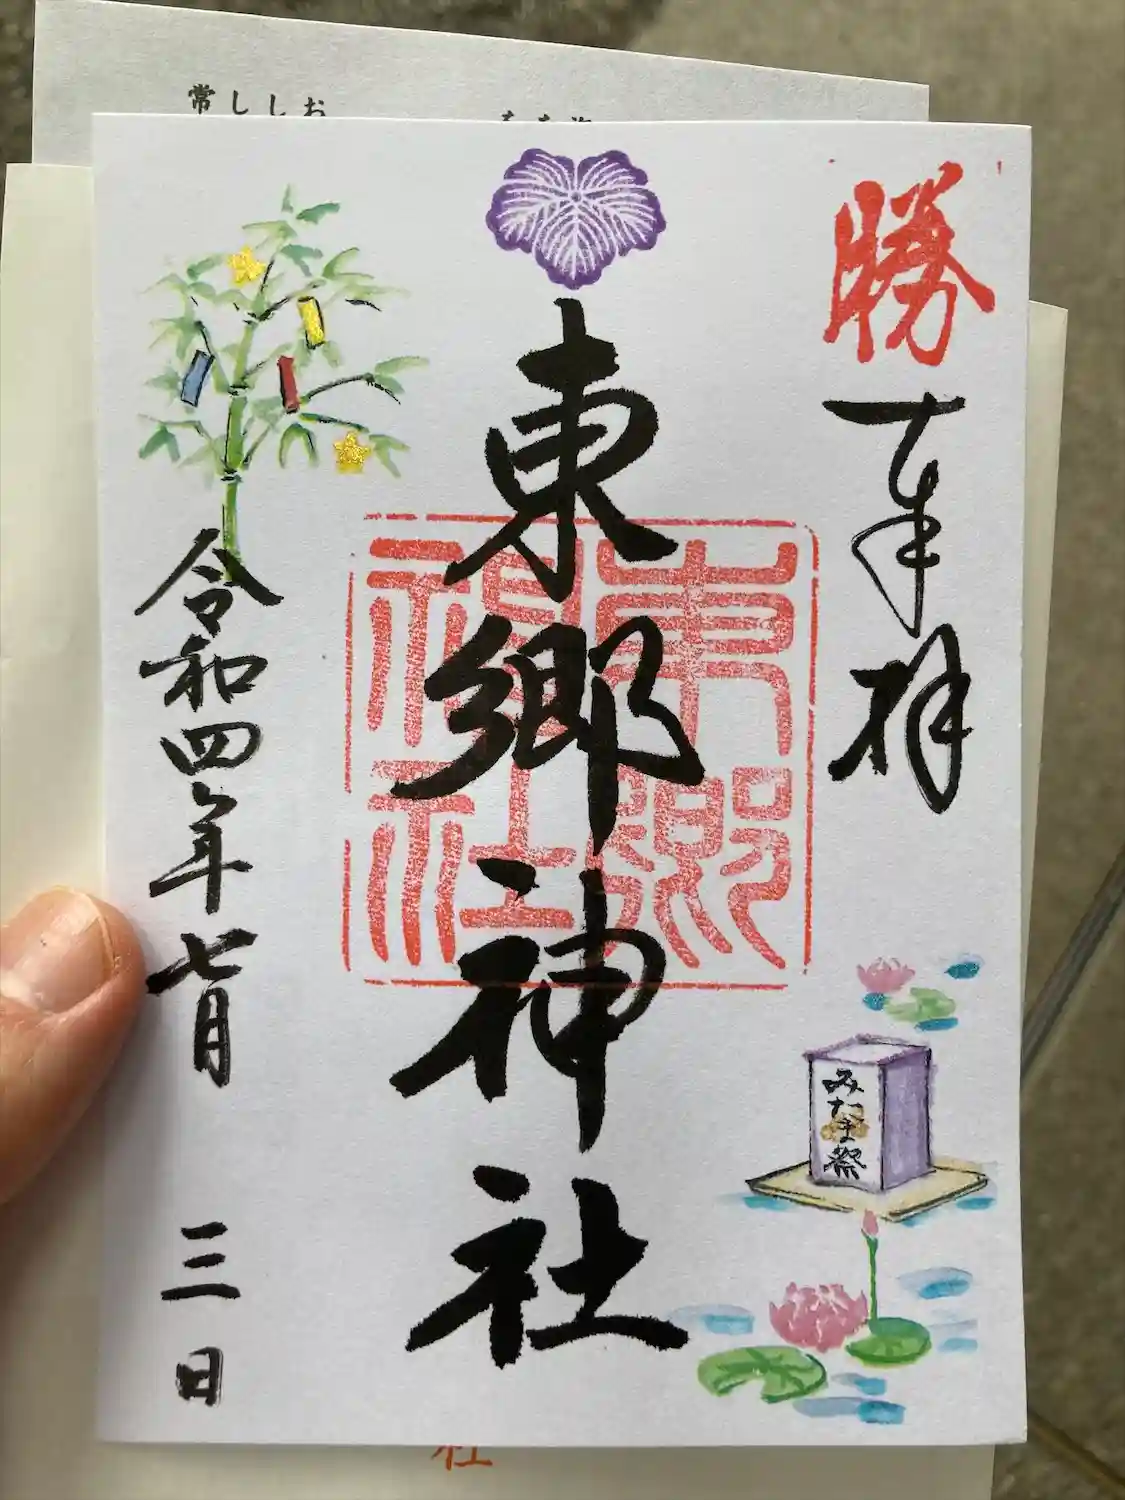 常ししお
勝
奉拝
東郷神社
東郷
神社
令和四年七月三日
みたま祭
社